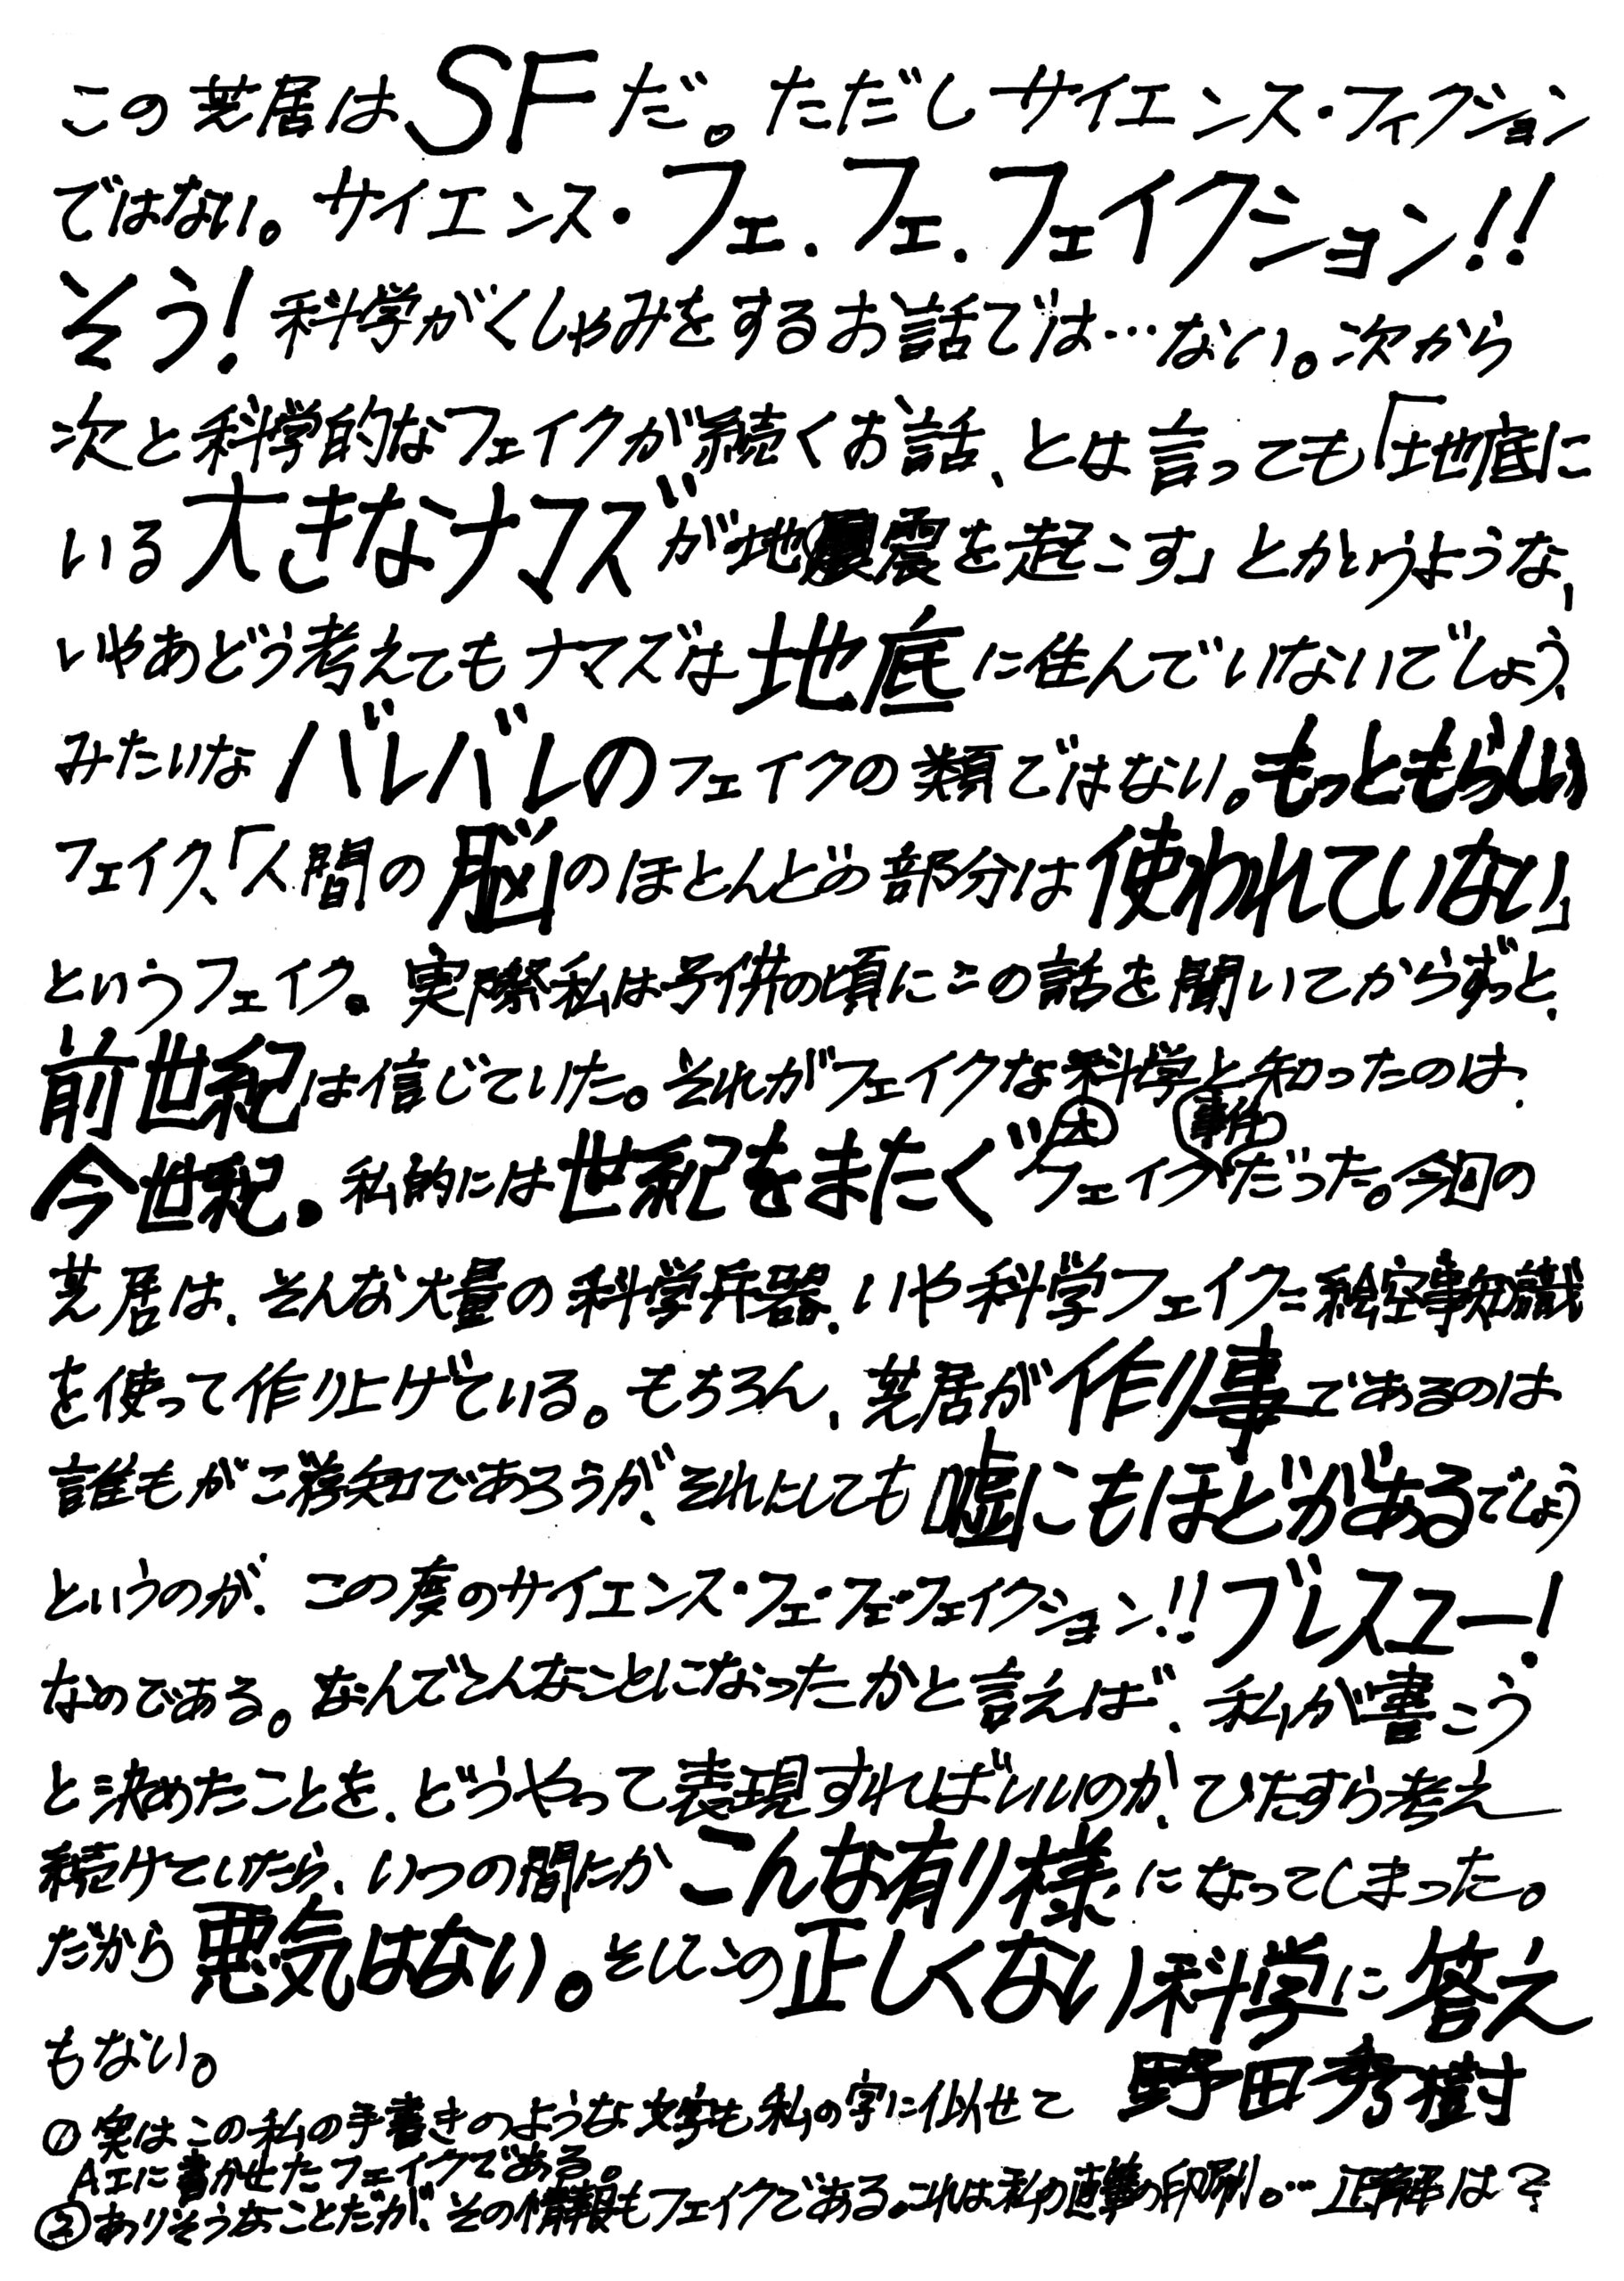 この芝居はSFだ。ただしサイエンス・フィクション
ではない。サイエンス・フェ、フェ、フェイクション!!
そう!科学がくしゃみをするお話では…ない。次から
次と科学的なフェイクが続くお話、とは言っても「地底に
いる大きなナマズが地震を起こす」とかいうような、
いやあどう考えてもナマズは地底に住んでいないでしょう、
みたいなバレバレのフェイクの類ではない。もっともらしい
フェイク、「人間の脳のほとんどの部分は使われていない」
というフェイク。実際私は子供の頃にこの話を聞いてからずっと、
前世紀は信じていた。それがフェイクな科学と知ったのは、
大 事件
今世紀。私的には世紀をまたぐフェイクだった。今回の
芝居は、そんな大量の科学兵器、いや科学フェイク=絵空事知識
を使って作り上げている。もちろん、芝居が作り事であるのは
誰もがご存知であろうが、それにしても嘘にもほどがあるでしょう
というのが、この度のサイエンス・フェ・フェ・フェイクション!!ブレスユー!
なのである。なんでこんなことになったかと言えば、私が書こう
と決めたことを、どうやって表現すればいいのか、ひたすら考え
続けていたら、いつの間にかこんな有り様になってしまった。
だから悪気はない。そしてこの正しくない科学に答え
もない。
野田秀樹
①実はこの私の手書きのような文字も私の字に似せて
AIに書かせたフェイクである。
②ありそうなことだが、その情報もフェイクである。これは私の直筆の印刷。…正解は?